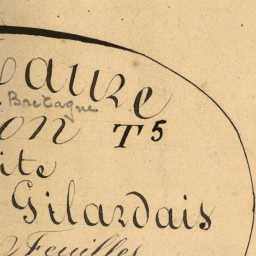 Lauze
Bretagne
on T5
ite
Gilardais
Feuilles